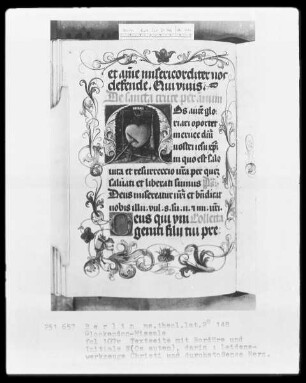 et ame misericorditer nos
defende. Qui vivis.
De sancta cruce per annum
Nos aute glo
riari oportet
in cruce dni
nostri iesu xpi
in quo est salus
vita et resurrectio nra per quem
salvati et liberati sumus Ps
Deus misereatur nri et bndicat
nobis illu. vul. s. su. n. et mi. nri.
Deus qui uni Collecta
geniti filii tui pre
251 657 Berlin ms.theol.lat.2° 148
Glockendon-Missale
fol 107v Textseite mit Bordüre und
Initiale N(os autem), darin: Leidens-
werkzeuge Christi und durchstoßenes Herz.